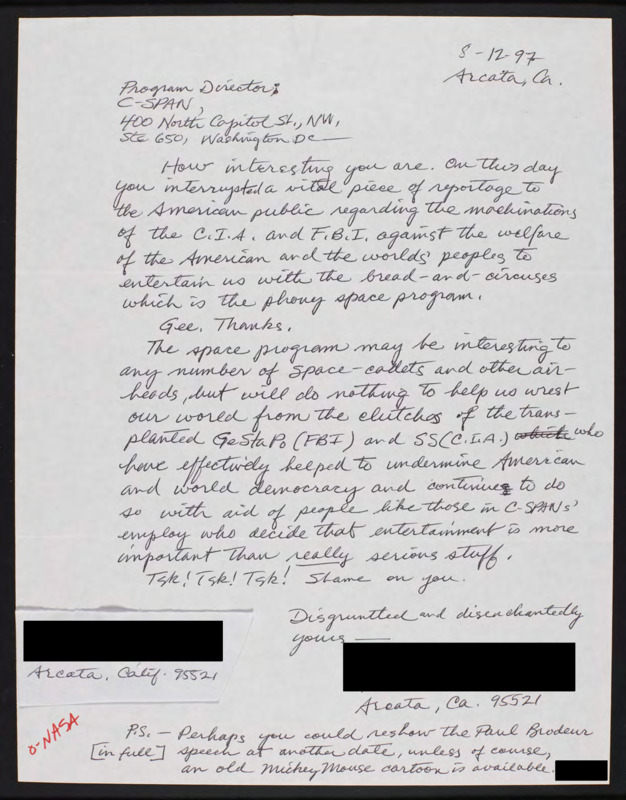 8-12-97
Arcata, Ca.
Program Director;
C-SPAN,
400 North Capitol St., NW,
Ste 650, Washington DC
How interesting you are. On this day
you interrupted a vital piece of reportage to
the American public regarding the machinations
of the C.I.A. and F.B.I. against the welfare
of the American and the worlds' peoples to
entertain us with the bread-and-circuses
which is the phony space program.
Gee. Thanks.
The space program may be interesting to
any number of space-cadets and other air-
heads, but will do nothing to help us wrest
our world from the clutches of the trans-
planted GeStaPo (FBI) and SS (C.I.A.) which who
have effectively helped to undermine American
and world democracy and continues to do
so with aid of people like those in C-SPANs'
employ who decide that entertainment is more
important than really serious stuff.
Tsk! Tsk! Tsk! Shame on you.
Disgruntled and disenchantedly
yours —
Arcata, Calif. 95521
Arcata, Ca. 95521
O-NASA
P.S. — Perhaps you could reshow the Paul Brodeur
[in full] speech at another date, unless of course,
an old Mickey Mouse cartoon is available.